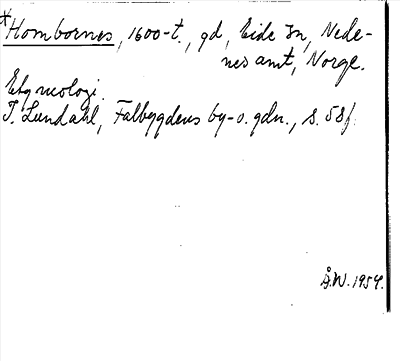 *Hombornes, 1600-t., gd, Eide sn, Nede-
nes amt, Norge.
Etymologi.
I. Lundahl, Falbygdens by- o. gdn., s. 58f.
Å.W. 1954.